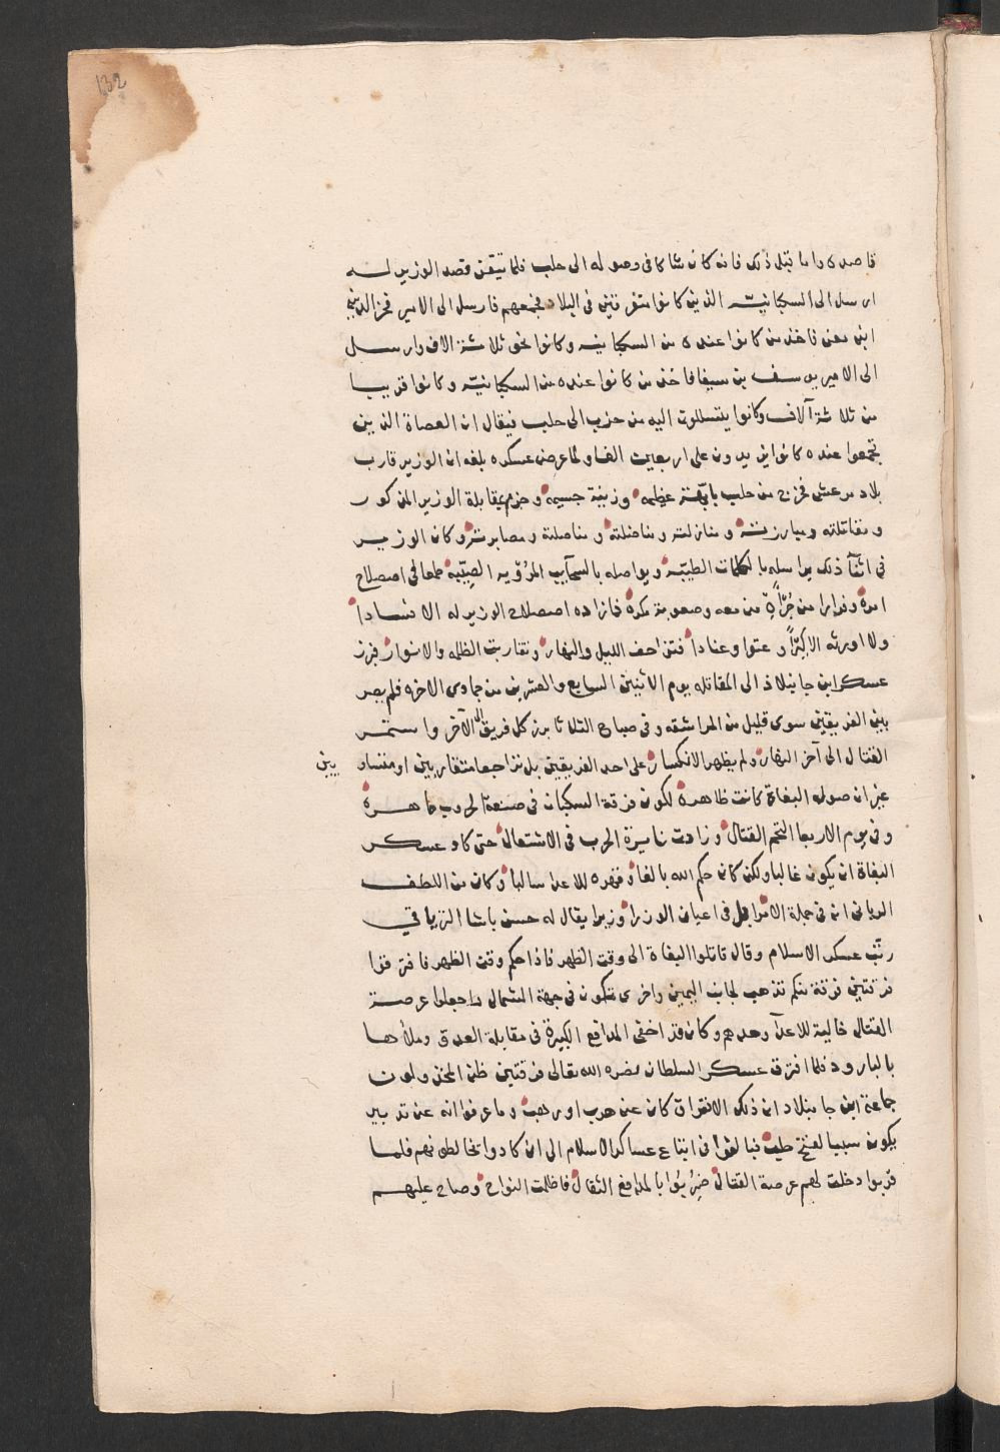 132
قاصده واما قبل ذلك فانه كان شاكا في وصوله الى حلب فلما تيقن قصد الوزير له
ارسل الى السكبانيه الذين كانوا متفرقين في البلاد فجمعهم فارسل الى الامير فخر الدين
ابن معن فاخذ من كانوا عنده من السكبانيه وكانوا نحو ثلاثة الاف وارسل
الى الامير يوسف بن سيفا فاخذ من كانوا عنده من السكبانيه وكانوا قريبا
من ثلاثة آلاف وكانوا يتسللون اليه من حزب الى حلب فيقال ان العصاة الذين
تجمعوا عنده كانوا يزيدون على اربعين الفا ولما عرض عسكره بلغه ان الوزير قارب
بلاد مرعش فخرج من حلب بابهة عظيمه وزينة جسيمه وحزم بمقابلة الوزير المذكور
ومقاتلته ومبارزته ومنازلته ومناضلته ومناصلته ومصابرته وكان الوزير
في اثنآ ذلك يراسله بالكلمات الطيبه ويواصله بالسحآيب المرويه الصيّبه طمعا في اصطلاح
امره وفرارا من جرأة من معه وصعوبة مكره فما زاده اصطلاح الوزير له الا فسادا
ولا اورثه الا كبرا وعتوا وعنادا فتزاحف الليل والنهار وتقاربت الظلمه والانوار فبرز
عسكر ابن جانبلاذ الى المقاتله يوم الاثنين السابع والعشرين من جمادى الاخره فلم يصر
بين الفريقين سوى قليل من المراشقه وفي صباح الثلاثا برز كل فريق الى الآخر واستمر
القتال الى آخر النهار ولم يظهر الانكسار على احد الفريقين بل تراجعا متقاربين او متساويين
غير ان صولة البغاة كانت ظاهرة لكون فرقة السكبان في صنعة الحروب ماهرة
وفي يوم الاربعا التحم القتال وزادت نايرة الحرب في الاشتعال حتى كاد عسكر
البغاة ان يكون غالبا ولكن كان حكم الله بالغا وقهره للاعدا سالبا وكان من اللطف
الرباني ان في جملة الامرا بل في اعيان الوزرا وزيرا يقال له حسن باشا الترياقي
رتب عسكر الاسلام وقال قاتلوا البغاة الى وقت الظهر فاذا حكم وقت الظهر فافترقوا
فرقتين فرقة منكم تذهب لجانب اليمين واخرى تكون في جهة الشمال واجعلوا عرصة
القتال خالية للاعدآ وحدهم وكان قد اخفى المدافع الكبيرة في مقابلة العدو وملأها
بالبارود فلما افترق عسكر السلطان نصره الله تعالى فرقتين ظن المخذولون
جماعة ابن جانبلاد ان ذلك الافتراق كان عن هرب او رهب وما عرفوا انه عن تدبير
يكون سببا لفتح حلب فبالغوا في اتباع عساكر الاسلام الى ان كادوا يخالطونهم فلما
قربوا ودخلت لهم عرصة القتال ضربوا بالمدافع الثقال فاظلمت النواح وصاح عليهم